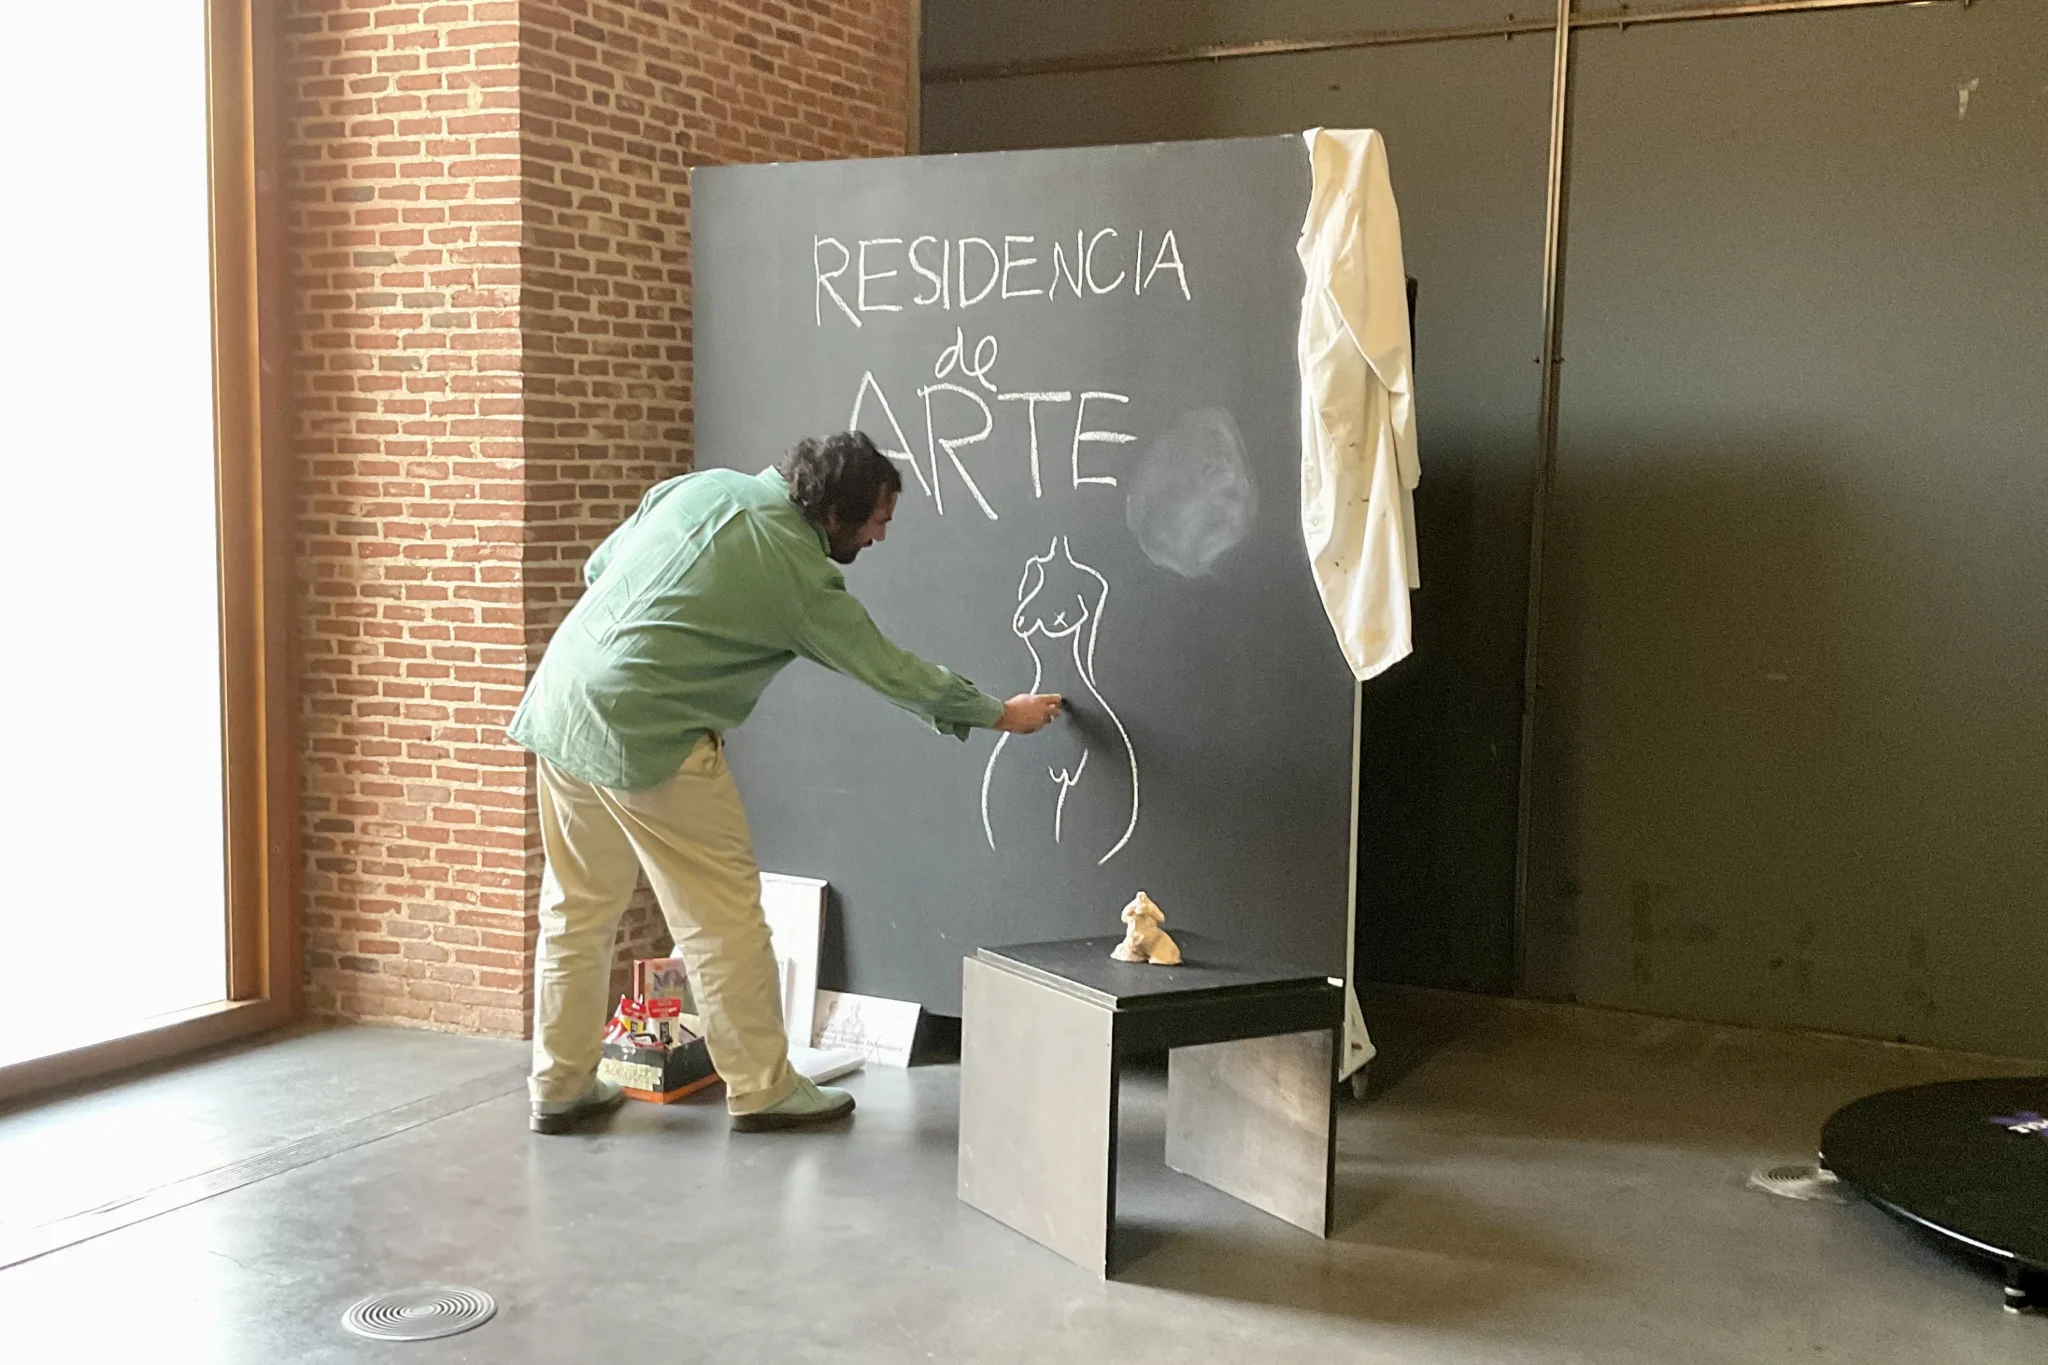 RESIDENCIA
de
ARTE